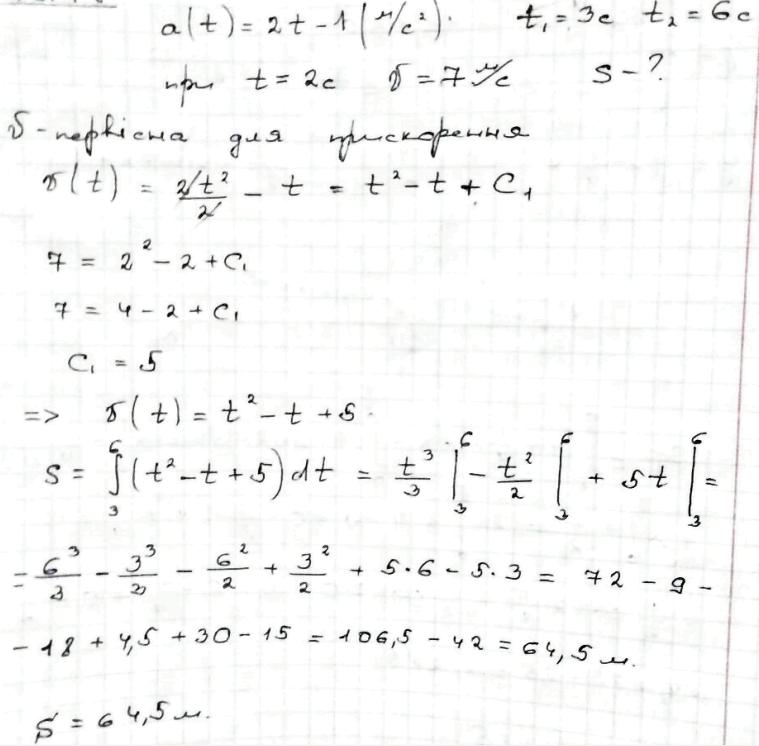 a(t) = 2t - 1 (м/с²). t₁ = 3с t₂ = 6с
при t = 2с v = 7 м/с S - ?
v - первісна для прискорення
v(t) = 2t²/2 - t = t² - t + C₁
7 = 2² - 2 + C₁
7 = 4 - 2 + C₁
C₁ = 5
=> v(t) = t² - t + 5.
S = ∫₃⁶ (t² - t + 5) dt = t³/3 |₃⁶ - t²/2 |₃⁶ + 5t |₃⁶ =
= 6³/3 - 3³/3 - 6²/2 + 3²/2 + 5·6 - 5·3 = 72 - 9 -
- 18 + 4,5 + 30 - 15 = 106,5 - 42 = 64,5 м.
S = 64,5 м.